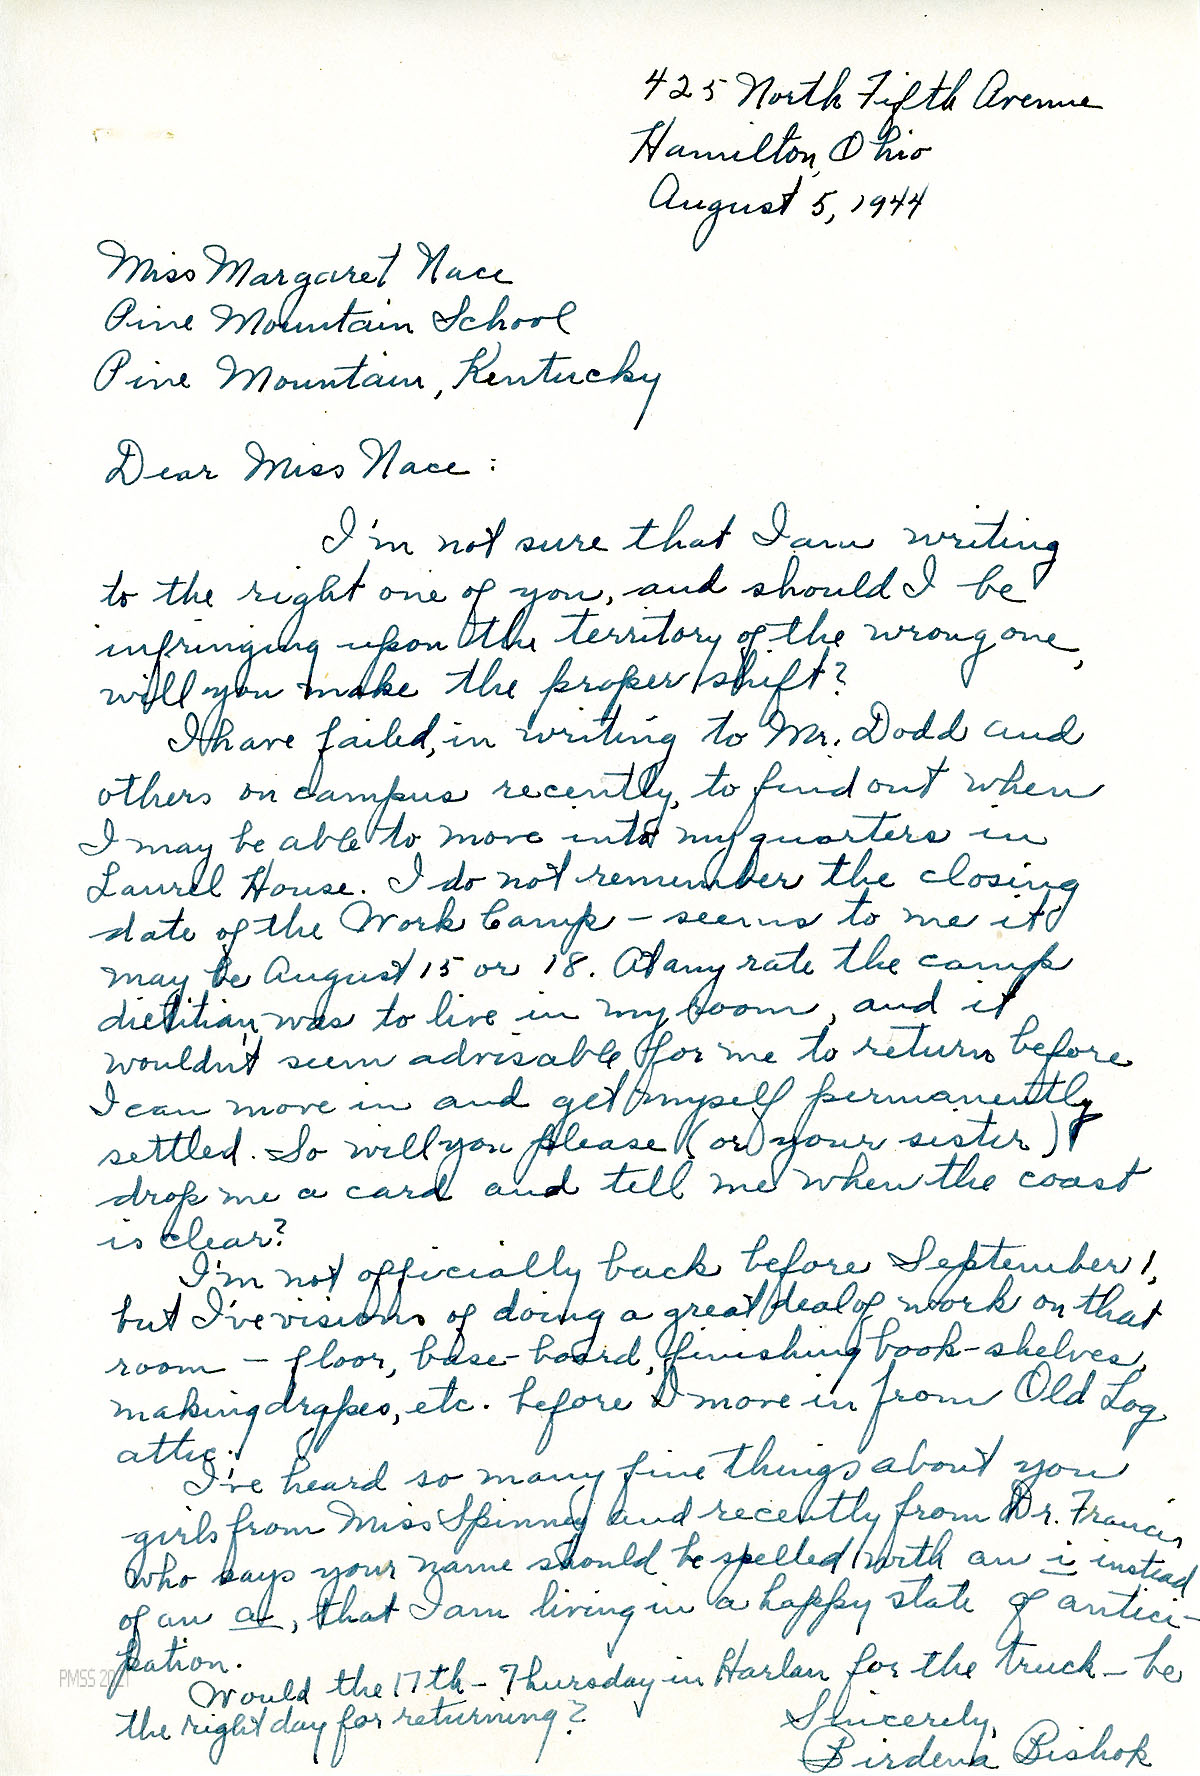 425 North Fifth Avenue
Hamilton, Ohio
August 5, 1944
Miss Margaret Nace
Pine Mountain School
Pine Mountain, Kentucky
Dear Miss Nace:
I'm not sure that I am writing
to the right one of you, and should I be
infringing upon the territory of the wrong one,
will you make the proper shift?
I have failed, in writing to Mr. Dodd and
others on campus recently, to find out when
I may be able to move into my quarters in
Laurel House. I do not remember the closing
date of the Work Camp – seems to me it
may be August 15 or 18. At any rate the camp
dietitian was to live in my room, and it
wouldn't seem advisable for me to return before
I can move in and get myself permanently
settled. So will you please (or your sister)
drop me a card and tell me when the coast
is clear?
I'm not officially back before September 1,
but I've visions of doing a great deal of work on that
room – floor, base-board, finishing book-shelves,
making drapes, etc. before I move in from Old Log
attic.
I've heard so many fine things about you
girls from Miss Spinney and recently from Dr. Francis,
who says your name should be spelled with an i instead
of an a, that I am living in a happy state of antici-
pation.
Would the 17th – Thursday in Harlan for the truck – be
the right day for returning?
Sincerely,
Birdena Bishop
PMSS 2021